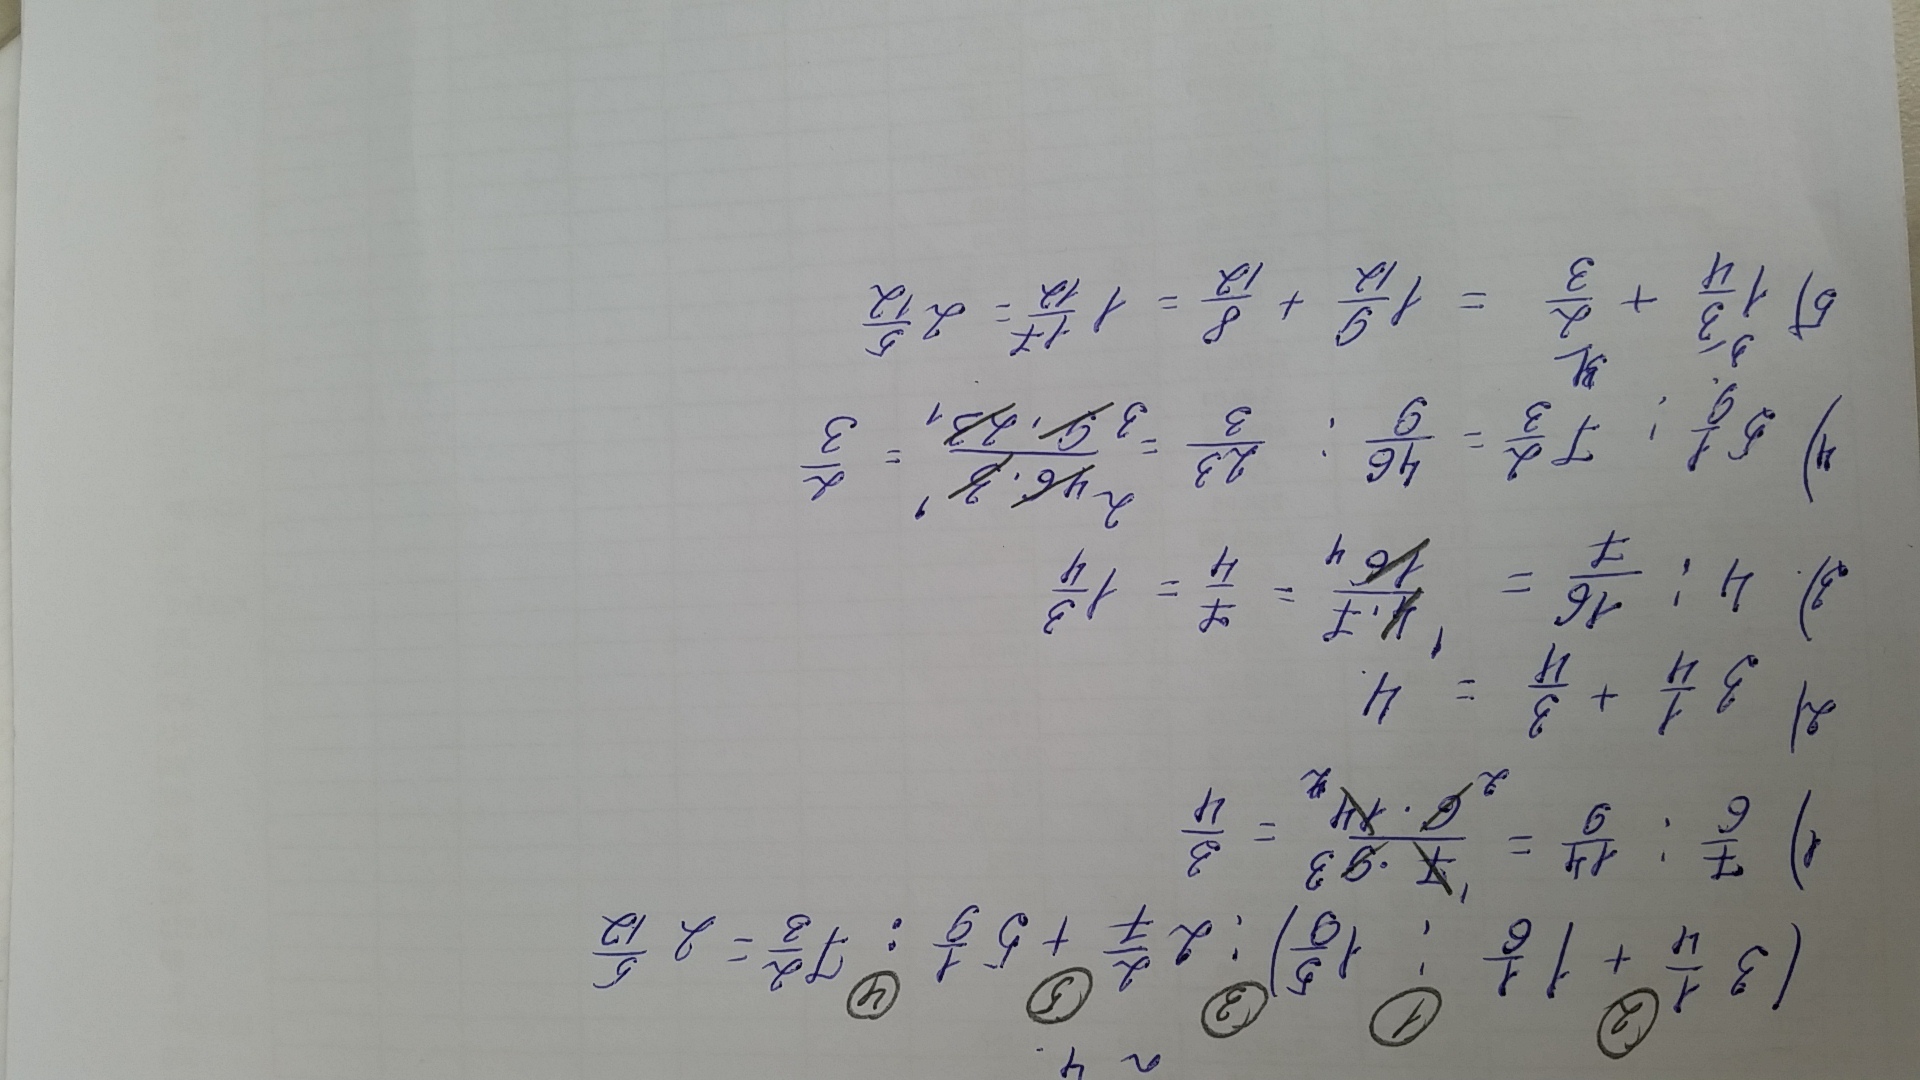 ~ 4.
② ① ③ ⑤ ④
(3 1/4 + 1 1/6 : 1 5/9) : 2 2/7 + 5 1/9 : 7 2/3 = 2 5/12
1) 7/6 : 14/9 = 7·9/6·14 = 3/4
2) 3 1/4 + 3/4 = 4
3) 4 : 16/7 = 4·7/16 = 7/4 = 1 3/4
4) 5 1/9 : 7 2/3 = 46/9 : 23/3 = 46·3/9·23 = 2/3
5) 1 3/4 + 2/3 = 1 9/12 + 8/12 = 1 17/12 = 2 5/12